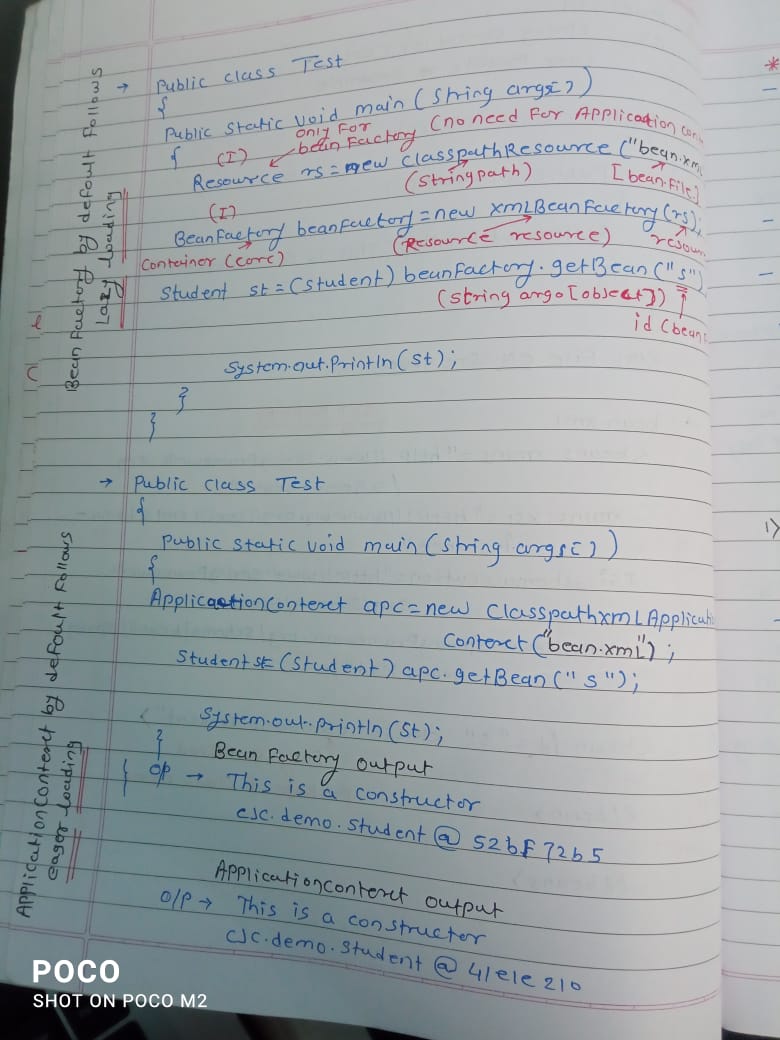 BeanFactory by default Follows
Lazy loading
→ Public class Test
{
Public static void main (String args[])
{
only For
bean Factory (no need For Application con
(I)
Resource rs = new classpathResource ("bean.xm
(string path)
[bean.File]
(I)
BeanFactory beanFactory = new xmLBeanFactory (rs);
container (core)
(Resource resource)
resour
Student st = (student) beanFactory.getBean ("s")
(string argo [object])
id (bean
System.out.Println (st);
}
}
→ Public class Test
{
Public static void main (String args[])
{
ApplicationContext apc = new ClasspathxmLApplicati
Context ("bean.xml");
Student st = (Student) apc.getBean ("s");
System.out.println (st);
}
}
Bean Factory output
o/p → This is a constructor
csc.demo.student @ 52bf72b5
ApplicationContext output
O/P → This is a constructor
csc.demo.student @ 41e1e210
ApplicationContext by default Follows
eager loading
*
1)
POCO
SHOT ON POCO M2